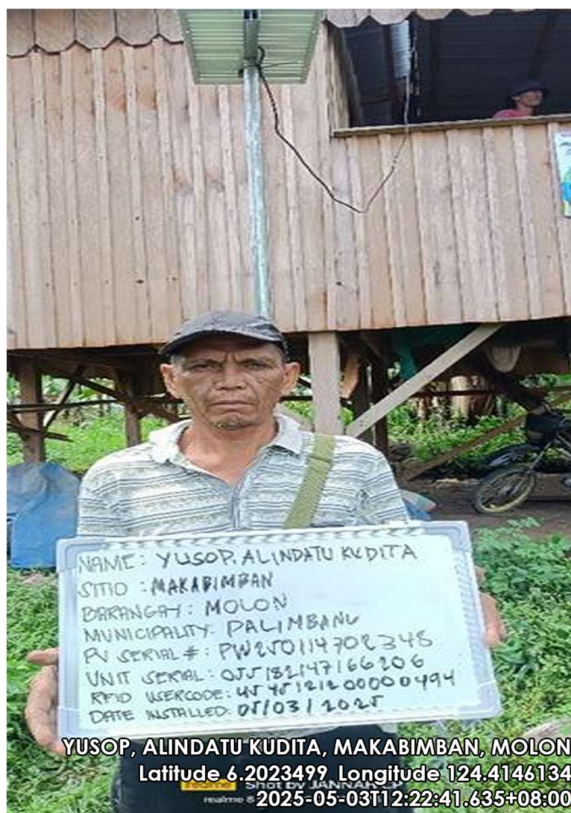 NAME: YUSOP. ALINDATU KUDITA
SITIO: MAKABIMBAN
BARANGAY: MOLON
MUNICIPALITY: PALIMBANG
PV SERIAL #: PW250114702348
UNIT SERIAL: 055182147166206
RFID USERCODE: 4545121200000494
DATE INSTALLED: 05/03/2025
YUSOP, ALINDATU KUDITA, MAKABIMBAN, MOLON
Latitude 6.2023499 Longitude 124.4146134
realme Shot by JANNAH CP
realme 8
2025-05-03T12:22:41.635+08:00